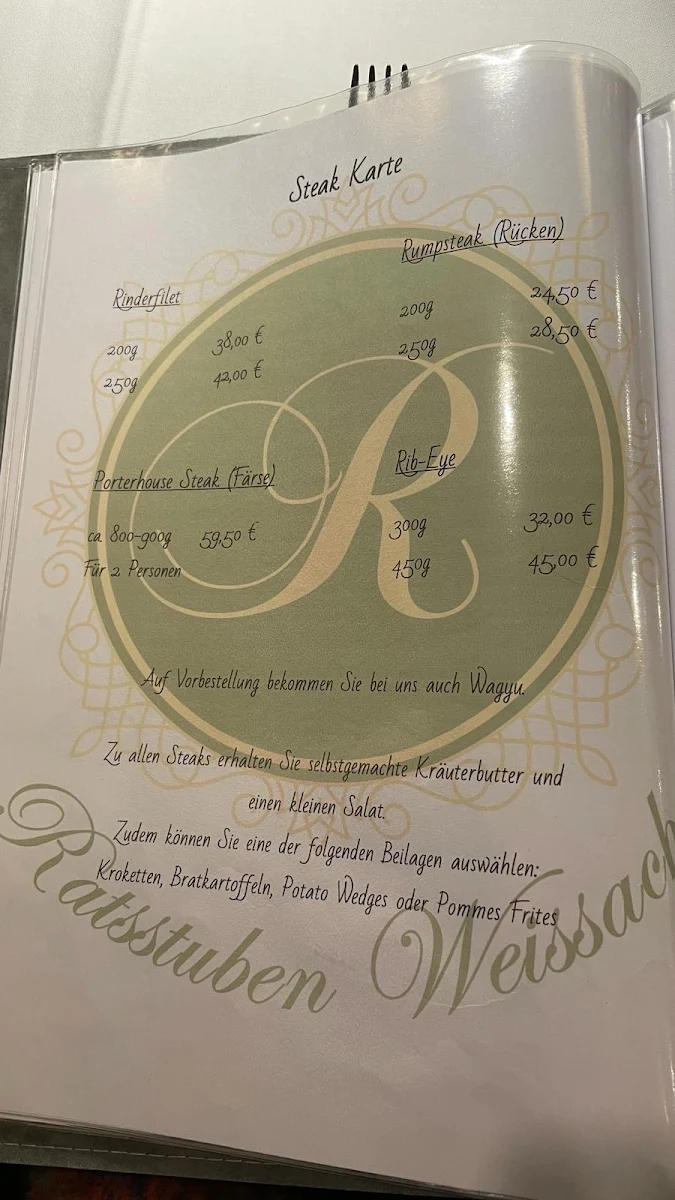 Steak Karte
Rinderfilet
200g 38,00 €
250g 42,00 €
Rumpsteak (Rücken)
200g 24,50 €
250g 28,50 €
Porterhouse Steak (Färse)
ca. 800-900g 59,50 €
Für 2 Personen
Rib-Eye
300g 32,00 €
450g 45,00 €
R
Auf Vorbestellung bekommen Sie bei uns auch Wagyu.
Zu allen Steaks erhalten Sie selbstgemachte Kräuterbutter und
einen kleinen Salat.
Zudem können Sie eine der folgenden Beilagen auswählen:
Kroketten, Bratkartoffeln, Potato Wedges oder Pommes Frites
Ratsstuben Weissach